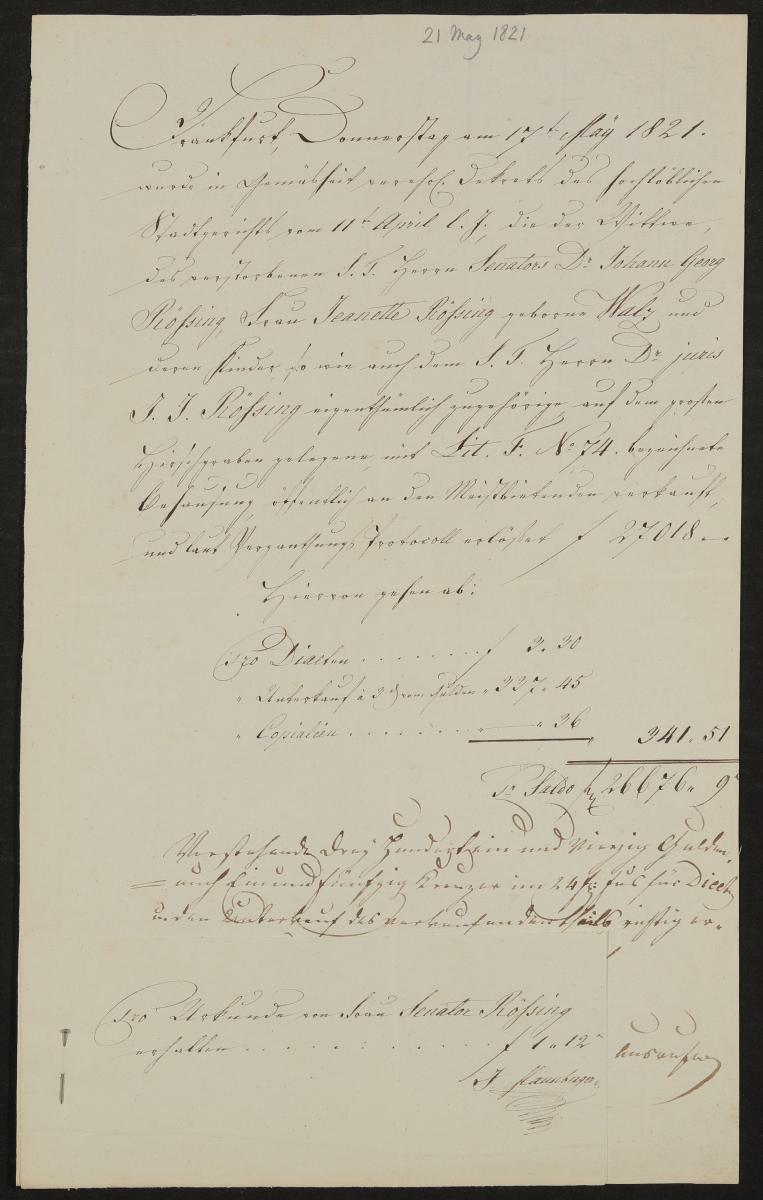 21 May 1821
Frankfurt, Donnerstag am 17t May 1821.
wurde in Gemäsheit verehrl. Dekrets des hochlöblichen
Stadtgerichts vom 11t April l. J., die der Wittwe,
des verstorbenen S. T. Herrn Senators Dr. Johann Georg
Rößing, Frau Jeanette Rößing geborne Walz und
deren Kinder, so wie auch dem S. T. Herrn Dr juris
J. J. Rößing eigenthümlich zugehörige, auf dem grosen
Hirschgraben gelegene, mit Lit. F. No 74. bezeichnete
Behausung, öffentlich an den Meistbietenden verkauft,
und laut Verganthungs Protocoll erlößet f 27018 —
Hiervon gehen ab:
Pro Diaeten . . . . . . . f 3. 30
" Unterkauf à 3 vom Gulden " 337. 45
" Copialien . . . . . . . . " — " 36
341. 51
Pr Saldo f 26676. 9
Vorstehende Drey Hundert ein und Vierzig Gulden
= auch Ein und fünfzig Kreuzer im 24 f: fus für Diaet
u den Unterkauf des verkaufenden theils richtig er=
Pro Urkunde von Frau Senator Rößing
erhalten . . . . . . . . . . f 1. 12
Ausrufer